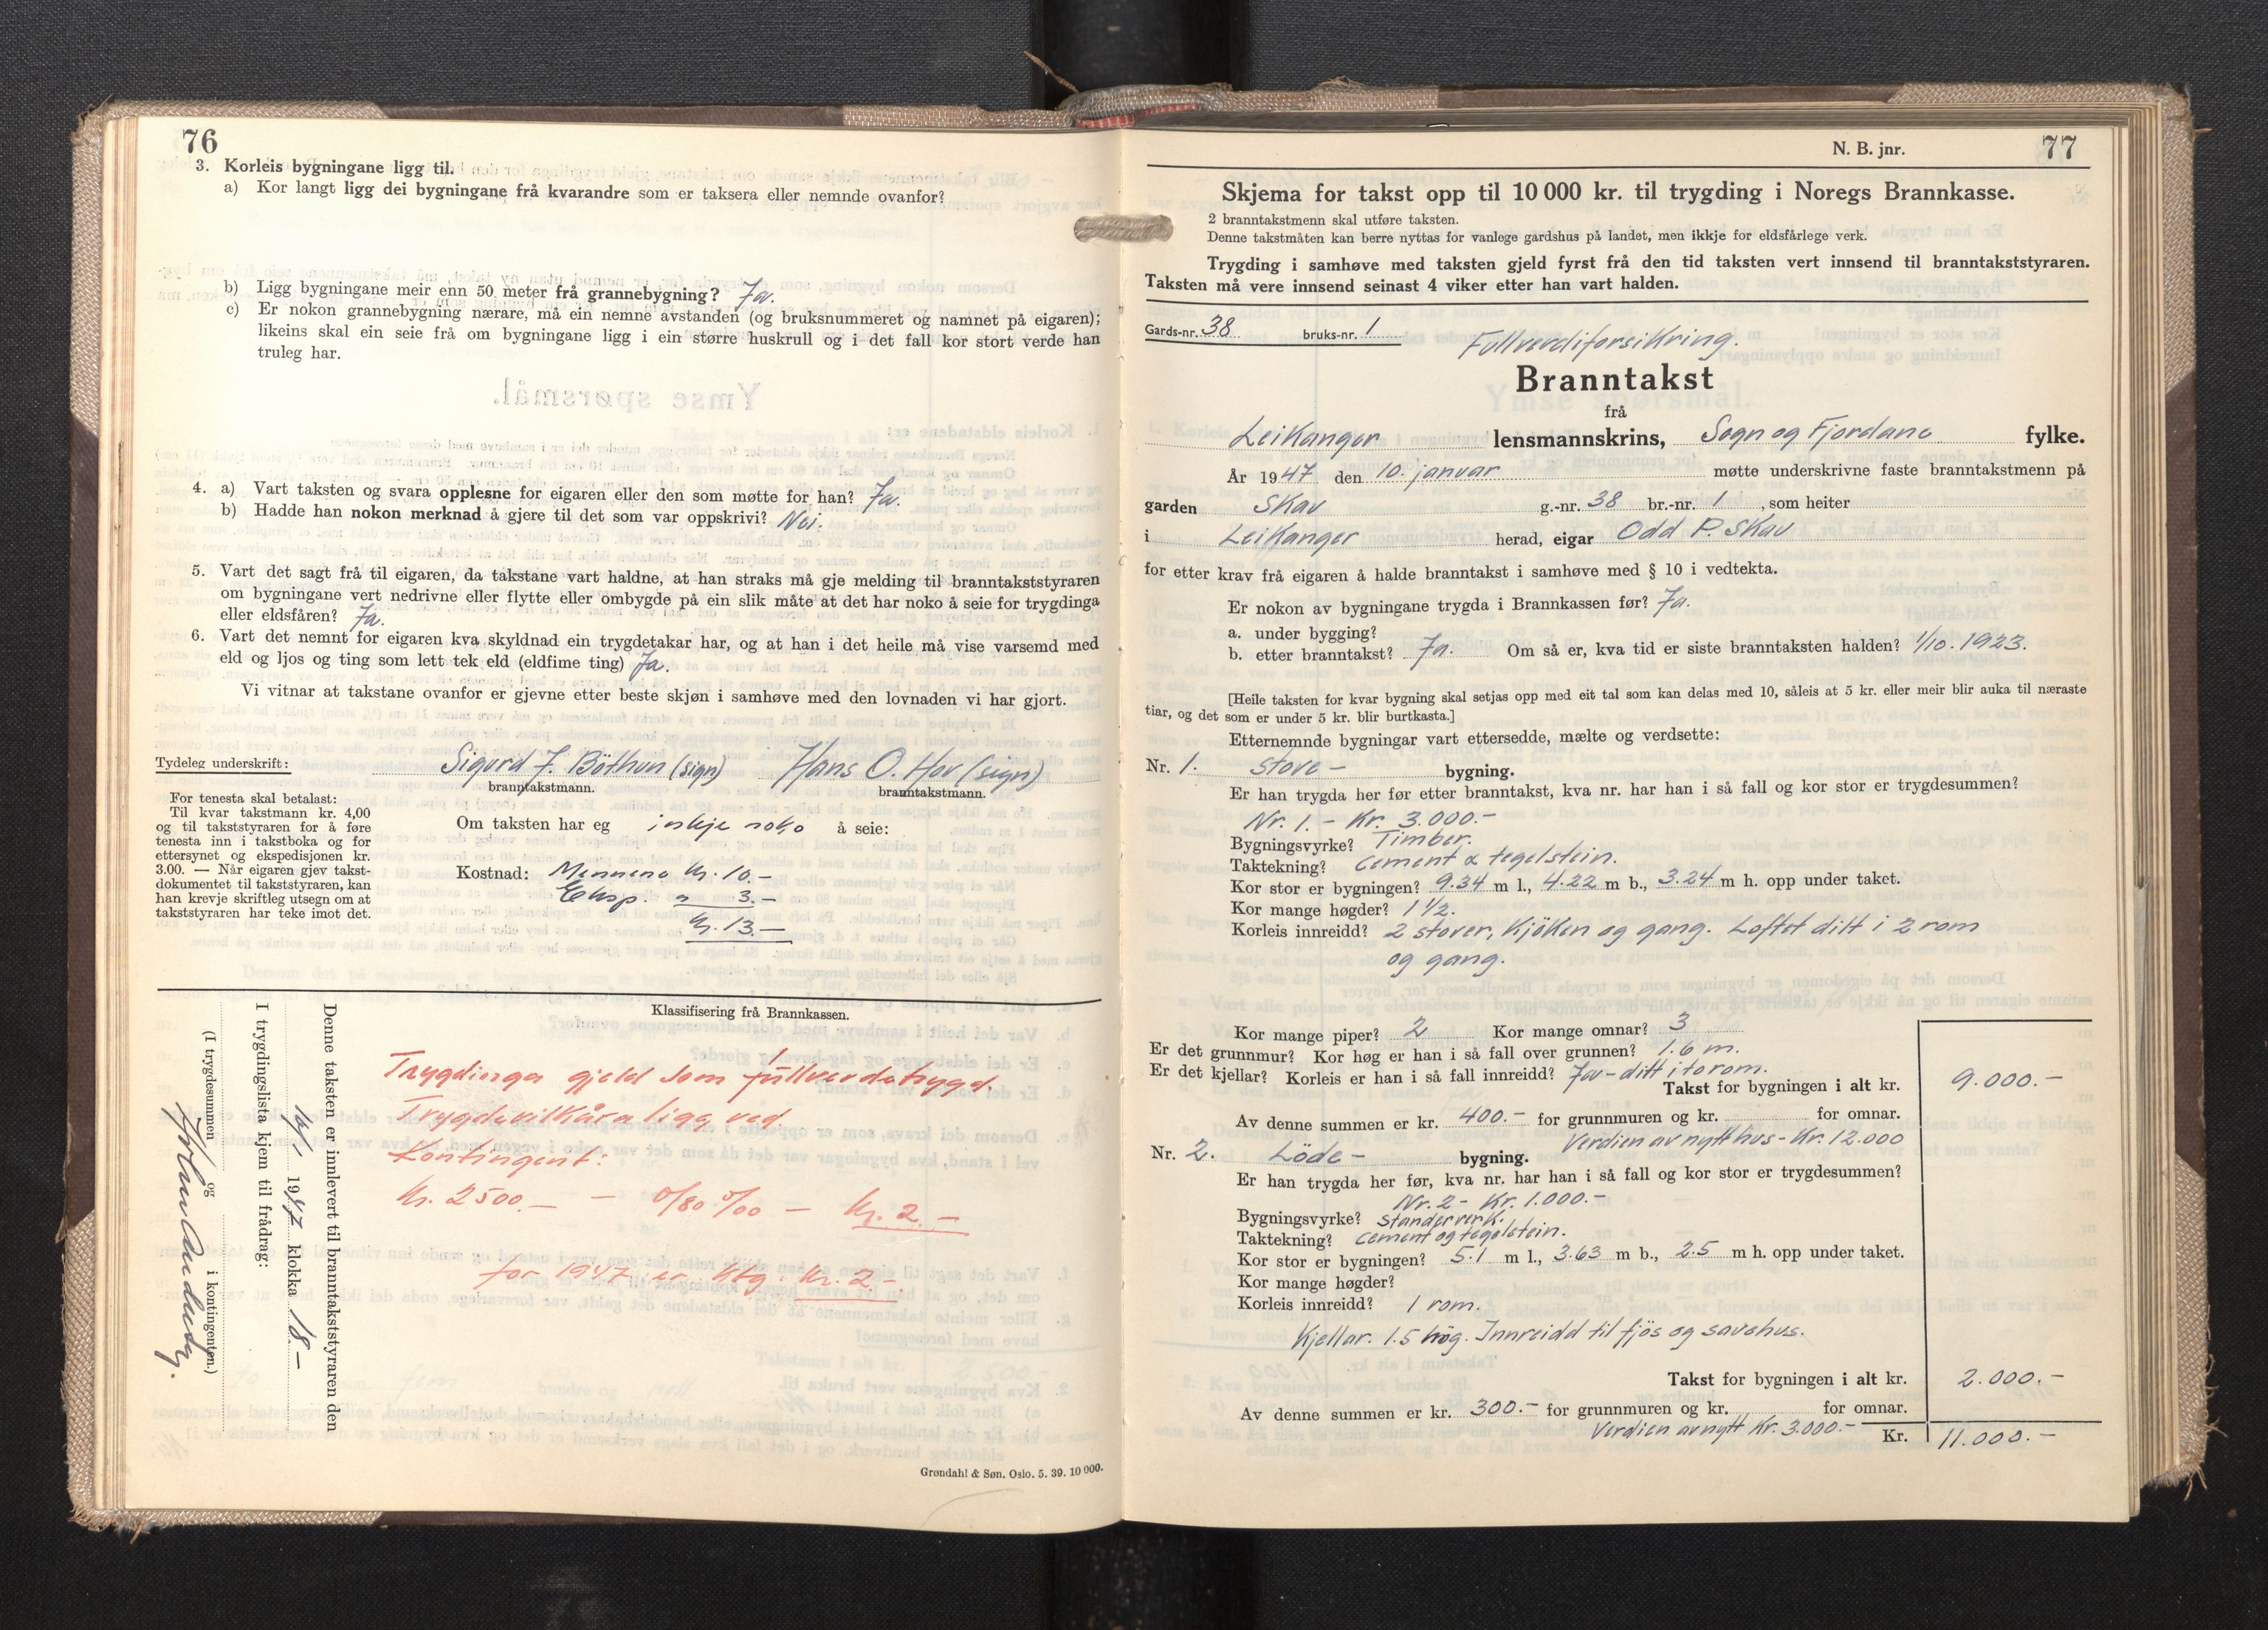 76
3. Korleis bygningane ligg til.
a) Kor langt ligg dei bygningane frå kvarandre som er taksera eller nemnde ovanfor?
b) Ligg bygningane meir enn 50 meter frå grannebygning? Ja.
c) Er nokon grannebygning nærare, må ein nemne avstanden (og bruksnummeret og namnet på eigaren);
likeins skal ein seie frå om bygningane ligg i ein større huskrull og i det fall kor stort verde han
truleg har.
4. a) Vart taksten og svara opplesne for eigaren eller den som møtte for han? Ja.
b) Hadde han nokon merknad å gjere til det som var oppskrivi? Nei.
5. Vart det sagt frå til eigaren, da takstane vart haldne, at han straks må gje melding til branntakststyraren
om bygningane vert nedrivne eller flytte eller ombygde på ein slik måte at det har noko å seie for trygdinga
eller eldsfåren? Ja.
6. Vart det nemnt for eigaren kva skyldnad ein trygdetakar har, og at han i det heile må vise varsemd med
eld og ljos og ting som lett tek eld (eldfime ting) Ja.
Vi vitnar at takstane ovanfor er gjevne etter beste skjøn i samhøve med den lovnaden vi har gjort.
Tydeleg underskrift: Sigurd J. Böthun (sign) Hans O. Hov (sign)
branntakstmann. branntakstmann.
For tenesta skal betalast:
Til kvar takstmann kr. 4,00
og til takststyraren for å føre
tenesta inn i takstboka og for
ettersynet og ekspedisjonen kr.
3.00. — Når eigaren gjev takst-
dokumentet til takststyraren, kan
han krevje skriftleg utsegn om at
takststyraren har teke imot det.
Om taksten har eg inkje noko å seie:
Kostnad: Mennene kr. 10.-
Eksp. " 3.-
kr. 13.-
Klassifisering frå Brannkassen.
Trygdinga gjeld som fullverdetrygd.
Trygdevilkåra ligg ved.
Kontingent:
Kr. 2500.- - 0/80 0/00 - kr. 2.-
for 1947 er ktg. kr. 2.-
Denne taksten er innlevert til branntakststyraren den
19 47 klokka 18.-
I trygdingslista kjem til frådrag:
(I trygdesummen og i kontingenten.)
Grøndahl & Søn. Oslo. 5. 39. 10 000.
N. B. jnr. 77
Skjema for takst opp til 10 000 kr. til trygding i Noregs Brannkasse.
2 branntakstmenn skal utføre taksten.
Denne takstmåten kan berre nyttas for vanlege gardshus på landet, men ikkje for eldsfårlege verk.
Trygding i samhøve med taksten gjeld fyrst frå den tid taksten vert innsend til branntakststyraren.
Taksten må vere innsend seinast 4 viker etter han vart halden.
Gards-nr. 38 bruks-nr. 1
Fullverdiforsikring.
Branntakst
frå
Leikanger lensmannskrins, Sogn og Fjordane fylke.
År 1947 den 10. januar møtte underskrivne faste branntakstmenn på
garden Skav g.-nr. 38 br.-nr. 1, som heiter
i Leikanger herad, eigar Odd P. Skav
for etter krav frå eigaren å halde branntakst i samhøve med § 10 i vedtekta.
Er nokon av bygningane trygda i Brannkassen før? Ja.
a. under bygging?
b. etter branntakst? Ja. Om så er, kva tid er siste branntaksten halden? 1/10. 1923.
[Heile taksten for kvar bygning skal setjas opp med eit tal som kan delas med 10, såleis at 5 kr. eller meir blir auka til næraste
tiar, og det som er under 5 kr. blir burtkasta.]
Etternemnde bygningar vart ettersedde, mælte og verdsette:
Nr. 1. Stove - bygning.
Er han trygda her før etter branntakst, kva nr. har han i så fall og kor stor er trygdesummen?
Nr. 1. - Kr. 3.000.-
Bygningsvyrke? Timber.
Taktekning? Cement & tegelstein.
Kor stor er bygningen? 9.34 m l., 4.22 m b., 3.24 m h. opp under taket.
Kor mange høgder? 1 1/2.
Korleis innreidd? 2 stover, Kjöken og gang. Loftet ditt i 2 rom
og gang.
Kor mange piper? 2 Kor mange omnar? 3
Er det grunnmur? Kor høg er han i så fall over grunnen? 1.6 m.
Er det kjellar? Korleis er han i så fall innreidd? Ja - ditt i to rom.
Takst for bygningen i alt kr. 9.000.-
Av denne summen er kr. 400.- for grunnmuren og kr. for omnar.
Verdien av nytt hus - Kr. 12.000
Nr. 2. Löde - bygning.
Er han trygda her før, kva nr. har han i så fall og kor stor er trygdesummen?
Nr. 2 - Kr. 1.000.-
Bygningsvyrke? Standerverk.
Taktekning? Cement og tegelstein.
Kor stor er bygningen? 5.1 m l., 3.63 m b., 2.5 m h. opp under taket.
Kor mange høgder?
Korleis innreidd? 1 rom.
Kjellar. 1.5 hög. Innreidd til fjös og savehus.
Takst for bygningen i alt kr. 2.000.-
Av denne summen er kr. 300.- for grunnmuren og kr. for omnar.
Verdien av nytt Kr. 3.000.-
Kr. 11.000.-